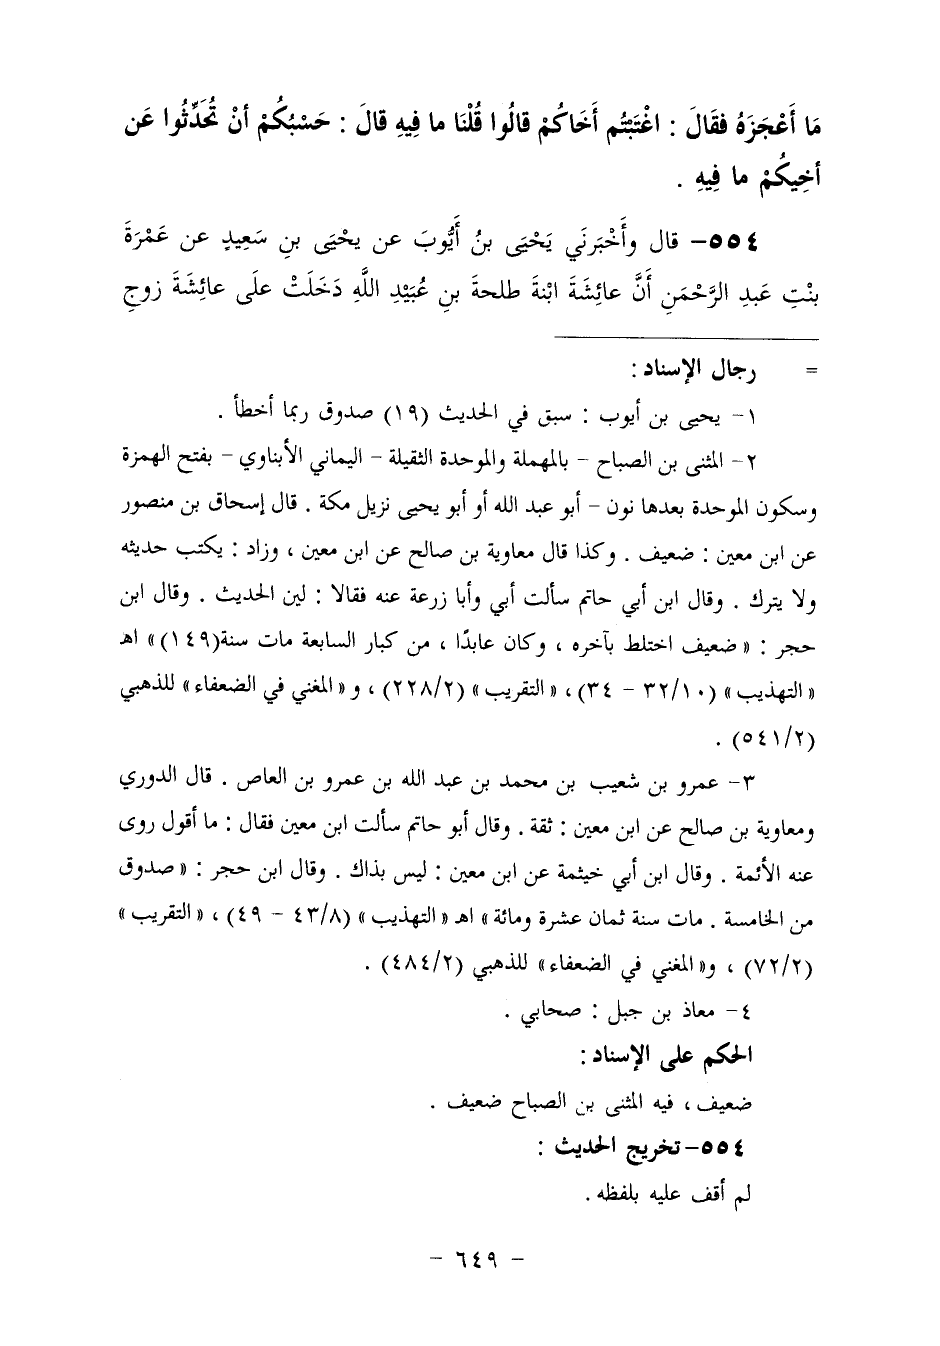 مَا أَعْجَزَهُ فقَالَ : اغْتَبْتُم أَخَاكُمْ قالُوا قُلْنَا ما فِيهِ قالَ : حَسْبُكُمْ أنْ تُحَدِّثُوا عَن
أخِيكُمْ ما فِيهِ .
٥٥٤- قال وأَخْبَرنَي يَحْيَى بنُ أَيُّوبَ عن يحْيَى بنِ سَعِيدٍ عن عَمْرَةَ
بنْتِ عَبدِ الرَّحْمَنِ أَنَّ عائِشَةَ ابْنَةَ طلحةَ بنِ عُبَيْدِ اللَّهِ دَخَلَتْ علَى عائِشَةَ زوجِ
= رجال الإسناد :
١- يحيى بن أيوب : سبق في الحديث (١٩) صدوق ربما أخطأ .
٢- المثنى بن الصباح - بالمهملة والموحدة الثقيلة - اليماني الأبناوي - بفتح الهمزة
وسكون الموحدة بعدها نون - أبو عبد الله أو أبو يحيى نزيل مكة . قال إسحاق بن منصور
عن ابن معين : ضعيف . وكذا قال معاوية بن صالح عن ابن معين ، وزاد : يكتب حديثه
ولا يترك . وقال ابن أبي حاتم سألت أبي وأبا زرعة عنه فقالا : لين الحديث . وقال ابن
حجر : « ضعيف اختلط بآخره ، وكان عابدًا ، من كبار السابعة مات سنة(١٤٩)» اهـ
« التهذيب » (٣٢/١٠ - ٣٤) ، « التقريب » (٢٢٨/٢) ، و « المغني في الضعفاء » للذهبي
(٥٤١/٢) .
٣- عمرو بن شعيب بن محمد بن عبد الله بن عمرو بن العاص . قال الدوري
ومعاوية بن صالح عن ابن معين : ثقة . وقال أبو حاتم سألت ابن معين فقال : ما أقول روى
عنه الأئمة . وقال ابن أبي خيثمة عن ابن معين : ليس بذاك . وقال ابن حجر : « صدوق
من الخامسة . مات سنة ثمان عشرة ومائة » اهـ « التهذيب » (٤٣/٨ - ٤٩) ، « التقريب »
(٧٢/٢) ، و« المغني في الضعفاء » للذهبي (٤٨٤/٢) .
٤- معاذ بن جبل : صحابي .
الحكم على الإسناد :
ضعيف ، فيه المثنى بن الصباح ضعيف .
٥٥٤- تخريج الحديث :
لم أقف عليه بلفظه .
- ٦٤٩ -